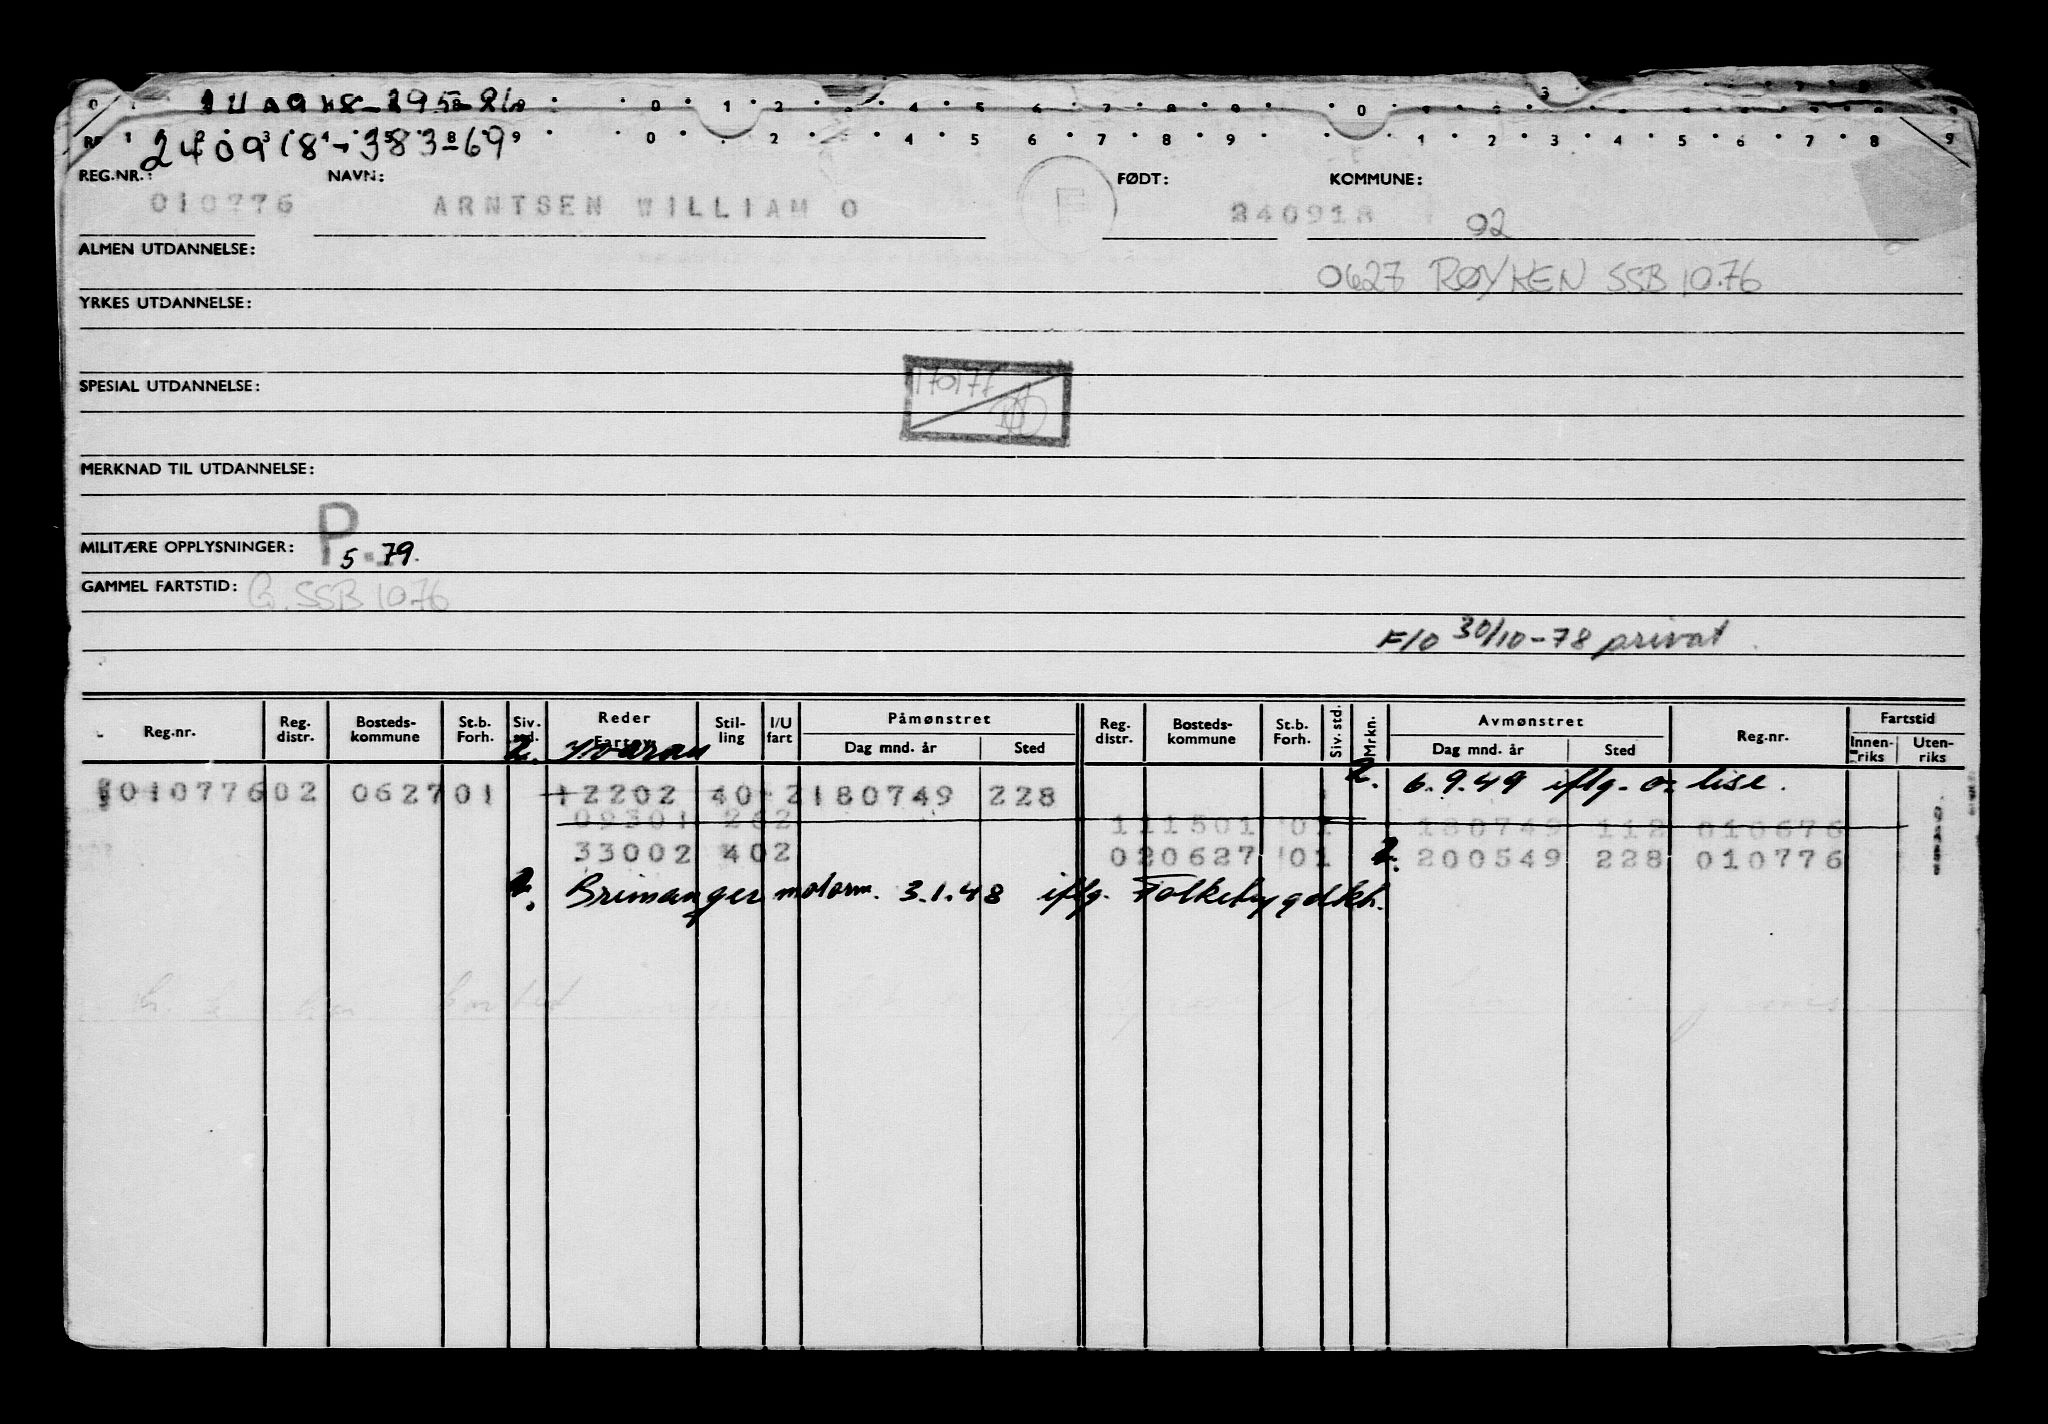 240918-38369
REG.NR.: NAVN: FØDT: KOMMUNE:
010776 ARNTSEN WILLIAM O F 240918 02
ALMEN UTDANNELSE:
0627 RØYKEN SSB 10.76
YRKES UTDANNELSE:
SPESIAL UTDANNELSE:
170177
MERKNAD TIL UTDANNELSE:
MILITÆRE OPPLYSNINGER: P 5.79.
GAMMEL FARTSTID: G. SSB 10.76
F/O 30/10-78 privat
Reg.nr. Reg. distr. Bosteds-kommune St.b. Forh. Siv. std. Reder Fartøy Stil-ling I/U fart Påmønstret Dag mnd. år Sted Reg. distr. Bosteds-kommune St.b. Forh. Siv. std. Mrkn. Avmønstret Dag mnd. år Sted Reg.nr. Fartstid Innen-riks Uten-riks
2. 2. 6.9.49 iflg. o. lise.
010776 02 0627 01 12202 40 2 180749 228
09301 262 111501 01 180749 112 010676
33002 402 020627 01 2. 200549 228 010776
2. Brimanger motorm. 3.1.48 iflg. Folkebygdkt.